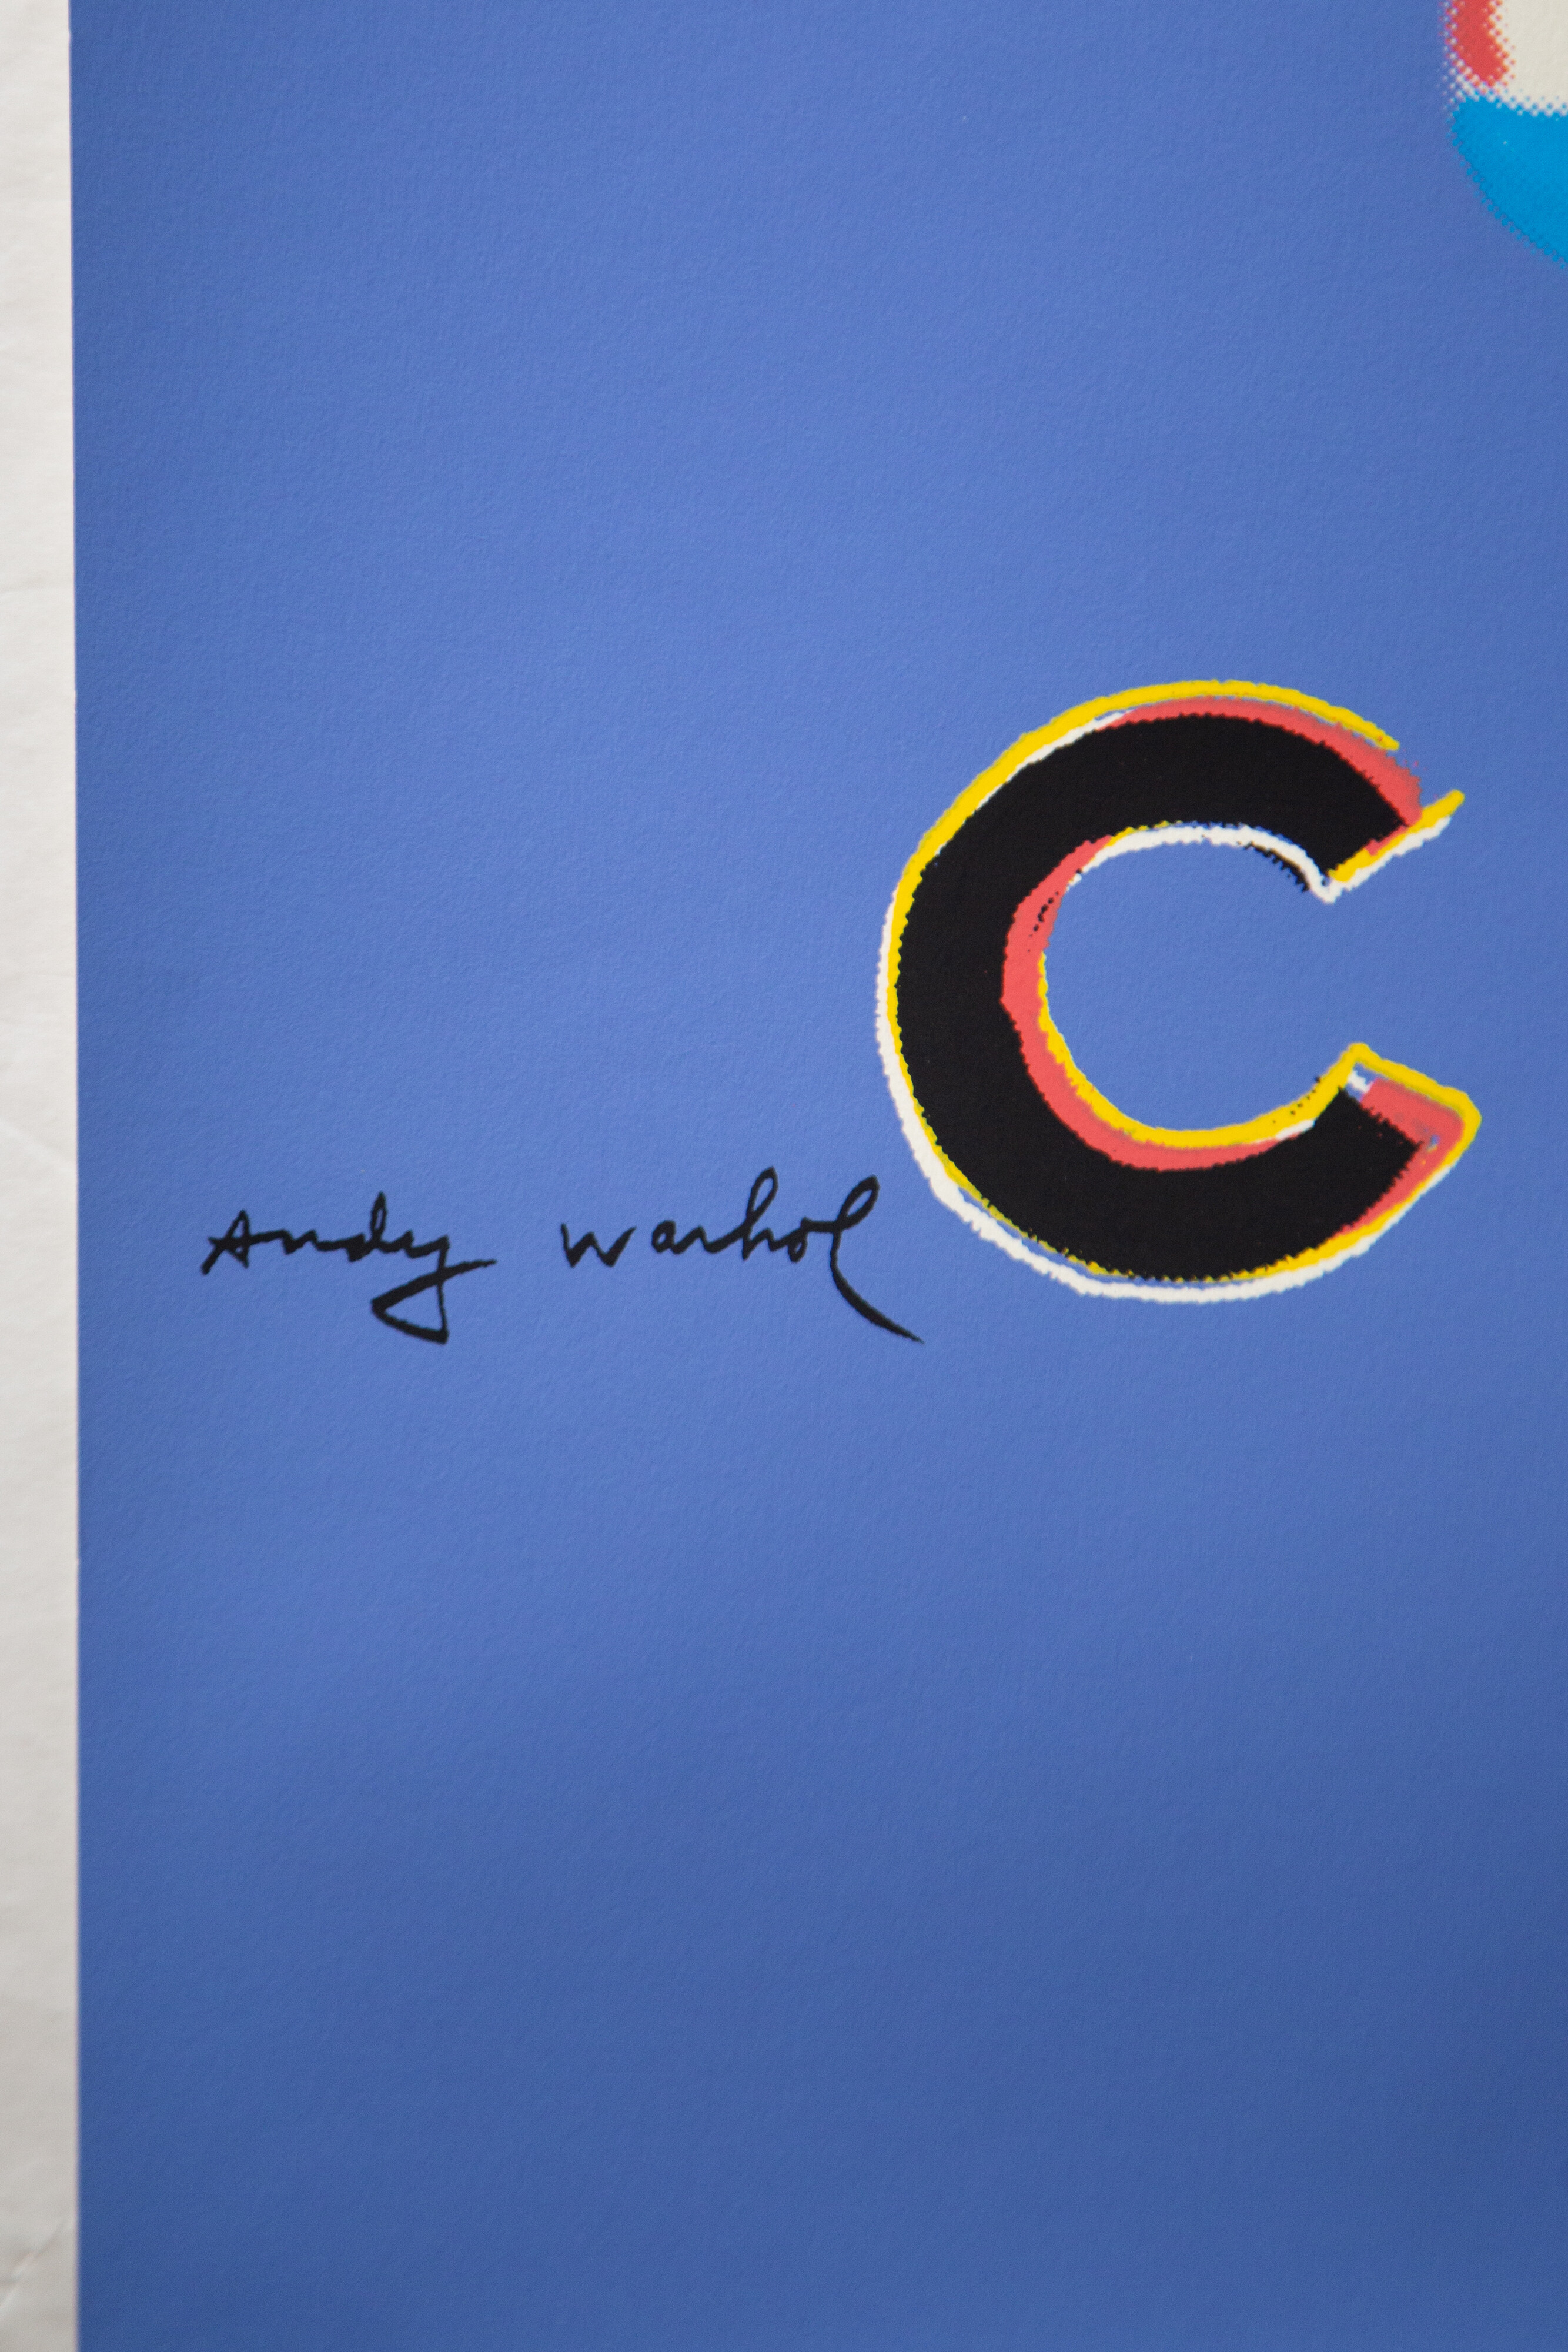 C
Andy Warhol